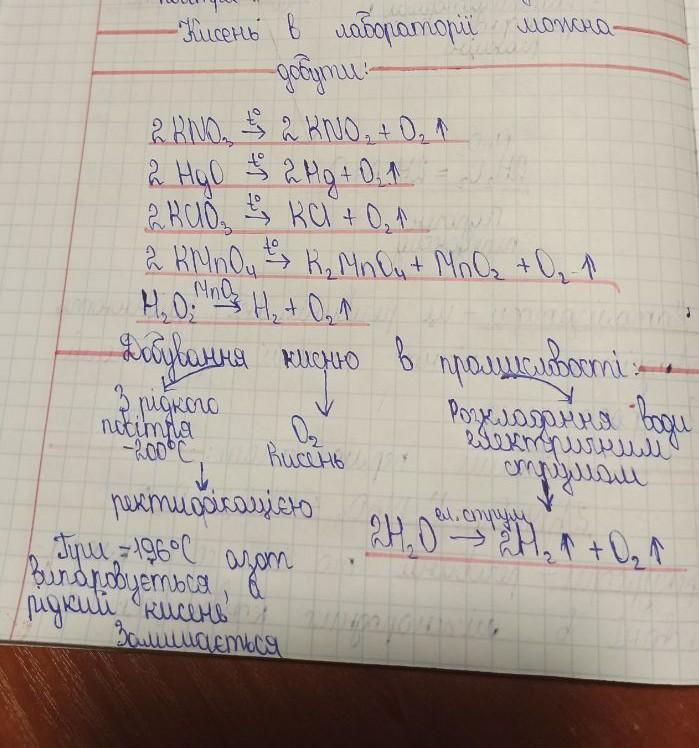 Кисень в лабораторії можна
добути:
2 KNO₃ t°→ 2 KNO₂ + O₂↑
2 HgO t°→ 2Hg + O₂↑
2 KClO₃ t°→ KCl + O₂↑
2 KMnO₄ t°→ K₂MnO₄ + MnO₂ + O₂↑
H₂O₂ MnO₂→ H₂ + O₂↑
Добування кисню в промисловості:
З рідкого
повітря
-200°C
ректифікацією
При -196°C азот
випаровується, а
рідкий кисень
залишається
O₂
Кисень
Розкладання води
електричним
струмом
ел. струм
2H₂O → 2H₂↑ + O₂↑